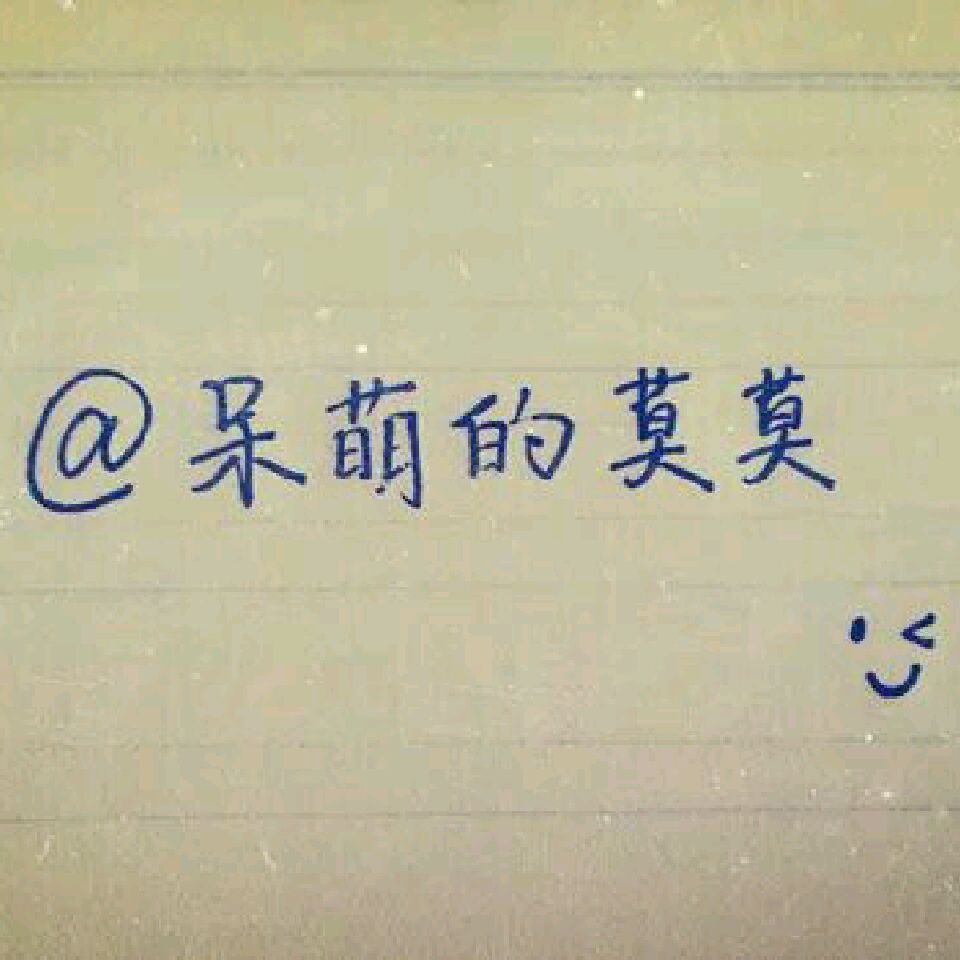 @呆萌的莫莫